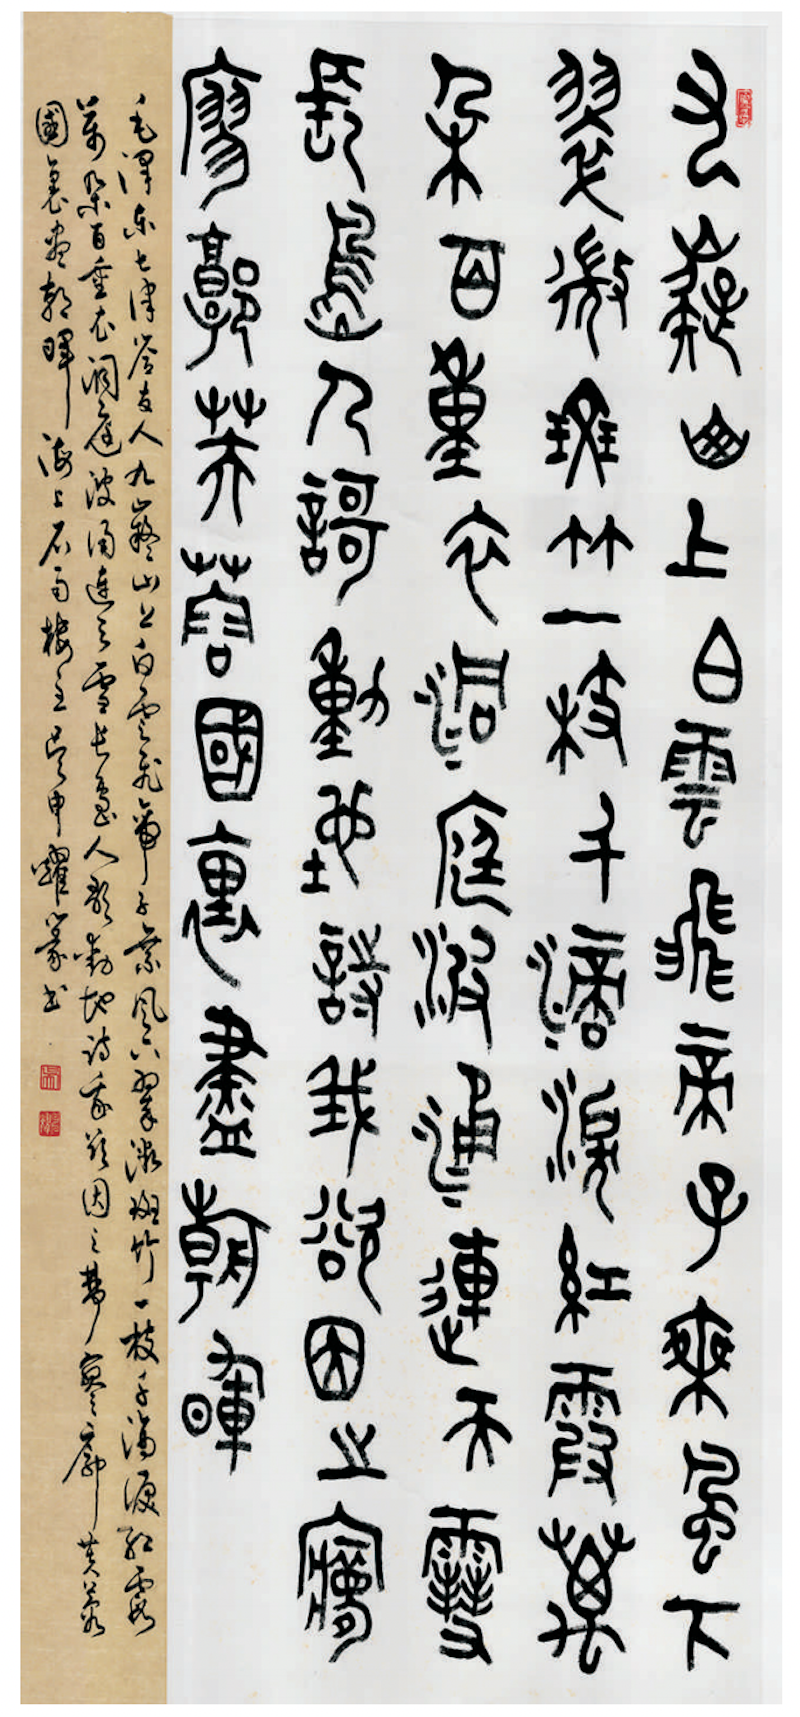 九嶷山上白雲飛帝子乘風下
翠微斑竹一枝千滴淚紅霞萬
朵百重衣洞庭波涌連天雪
長島人謌動地詩我欲因之夢
寥廓芙蓉國裏盡朝暉
毛澤东七律答友人九嶷山上白雲飛帝子乘風下翠微斑竹一枝千滴淚紅霞
萬朵百重衣洞庭波涌連天雪長島人歌動地詩我欲因之夢寥廓芙蓉
國裏盡朝暉 海上石雨樓主吳申耀篆書